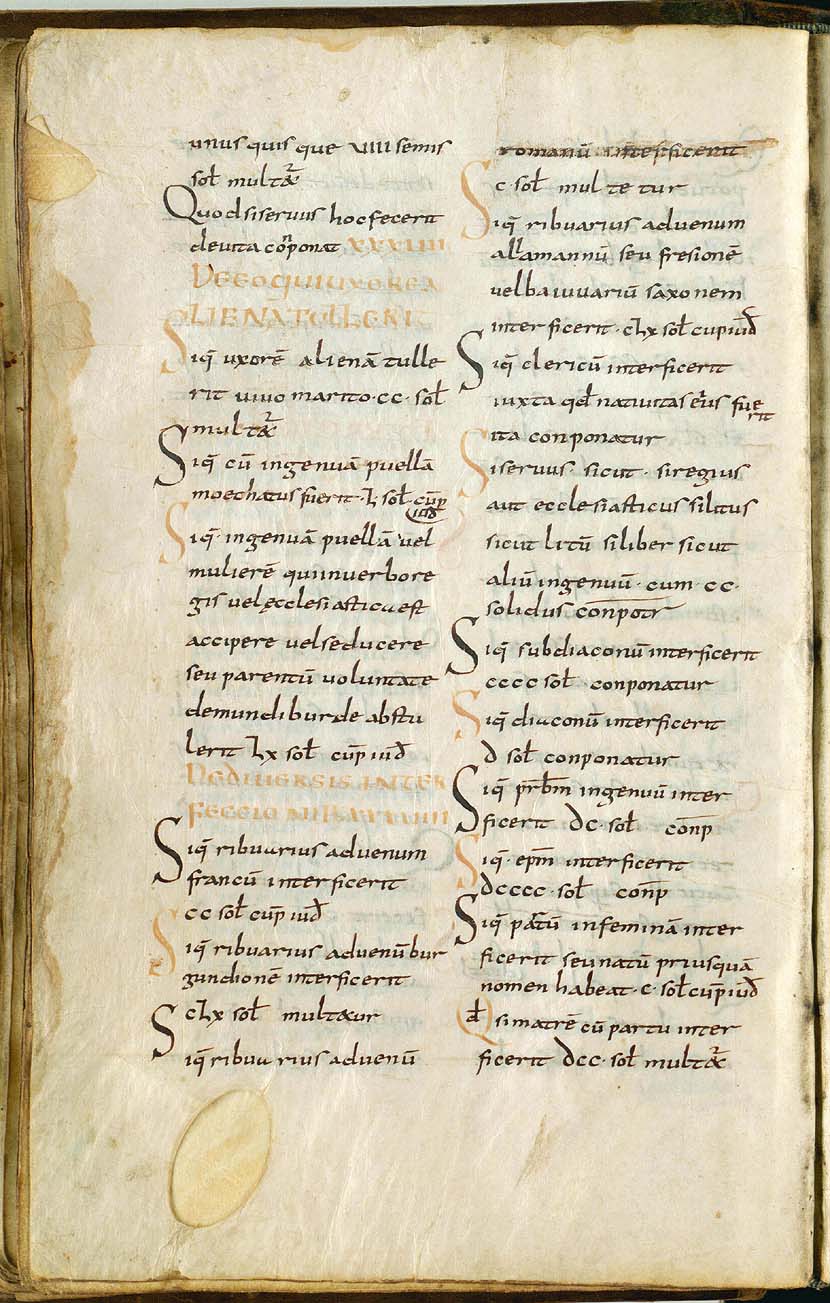 unus quis que VIIII semis
sol multetur
Quodsiservus hoc fecerit
devita conponat XXXVIIII
DE EO QUI UXOREM A
LIENA TULLERIT
Siq̄ uxorē alienā tulle
rit vivo marito · cc · sol
multet̄
Siq̄ cū ingenuā puellā
moechatus fuerit · L sol cūp
iud̄
Siq̄ · ingenuā puellā vel
mulierē qui inverbore
gis vel ęcclesiastica est
accipere vel seducere
seu parentū voluntate
demundiburde abstu
lerit Lx sol cūp iud̄
DE DIVERSIS INTER
FECCIONIB
Siq̄ ribuarius advenum
francū interficerit
cc sol cūp iud̄
Siq̄ ribuarius advenū bur
gundionē interficerit
cLx sol multetur
Siq̄ ribuarius advenū
romanū interficerit
c · sol multetur
Siq̄ ribuarius advenum
allamannū seu fresionē
vel baiuuariū saxonem
interficerit · cLx sol cup iud̄
Siq̄ clericū interficerit
iuxta qd nativitas eius fue
rit
ita conponatur
Siservus · sicut · siregius
aut ecclesiasticus silitus
sicut litū siliber sicut
aliū ingenuū · cum · cc ·
solidus conpotr
Siq̄ subdiaconū interficerit
cccc sol · conponatur
Siq̄ diaconū interficerit
d sol conponatur
Siq̄ prb̄m ingenuū inter
ficerit dc · sol conp̄
Siq̄ · ep̄m interficerit
dcccc · sol conp̄
Siq̄ partū infeminā inter
ficerit seu natū priusquā
nomen habeat · c · sol cūp iud̄
Qd simatrē cū partu inter
ficerit dcc · sol multet̄